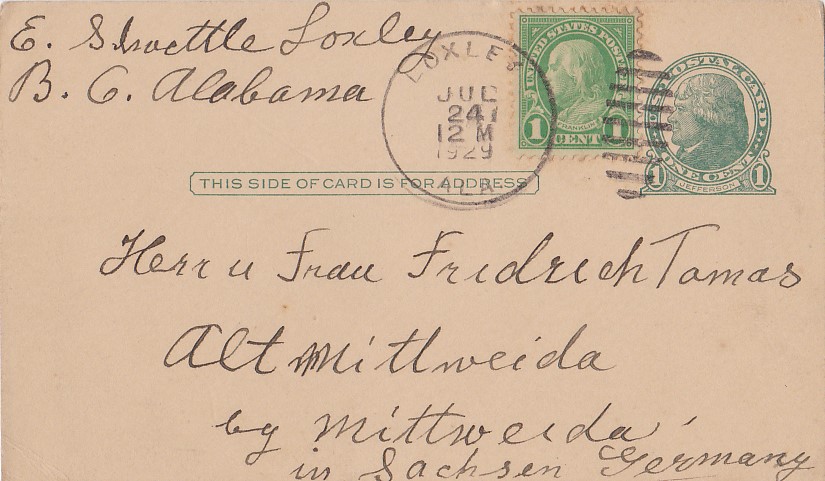 E. Schwettle Loxley
B. C. Alabama
LOXLEY
JUL
24
12 M
1929
ALA
UNITED STATES POSTAGE
FRANKLIN
1 CENT 1
POSTAL CARD
ONE CENT
1 JEFFERSON 1
THIS SIDE OF CARD IS FOR ADDRESS
Herr u Frau Fridrich Tomas
Alt Mittweida
by Mittweida
in Sachsen Germany